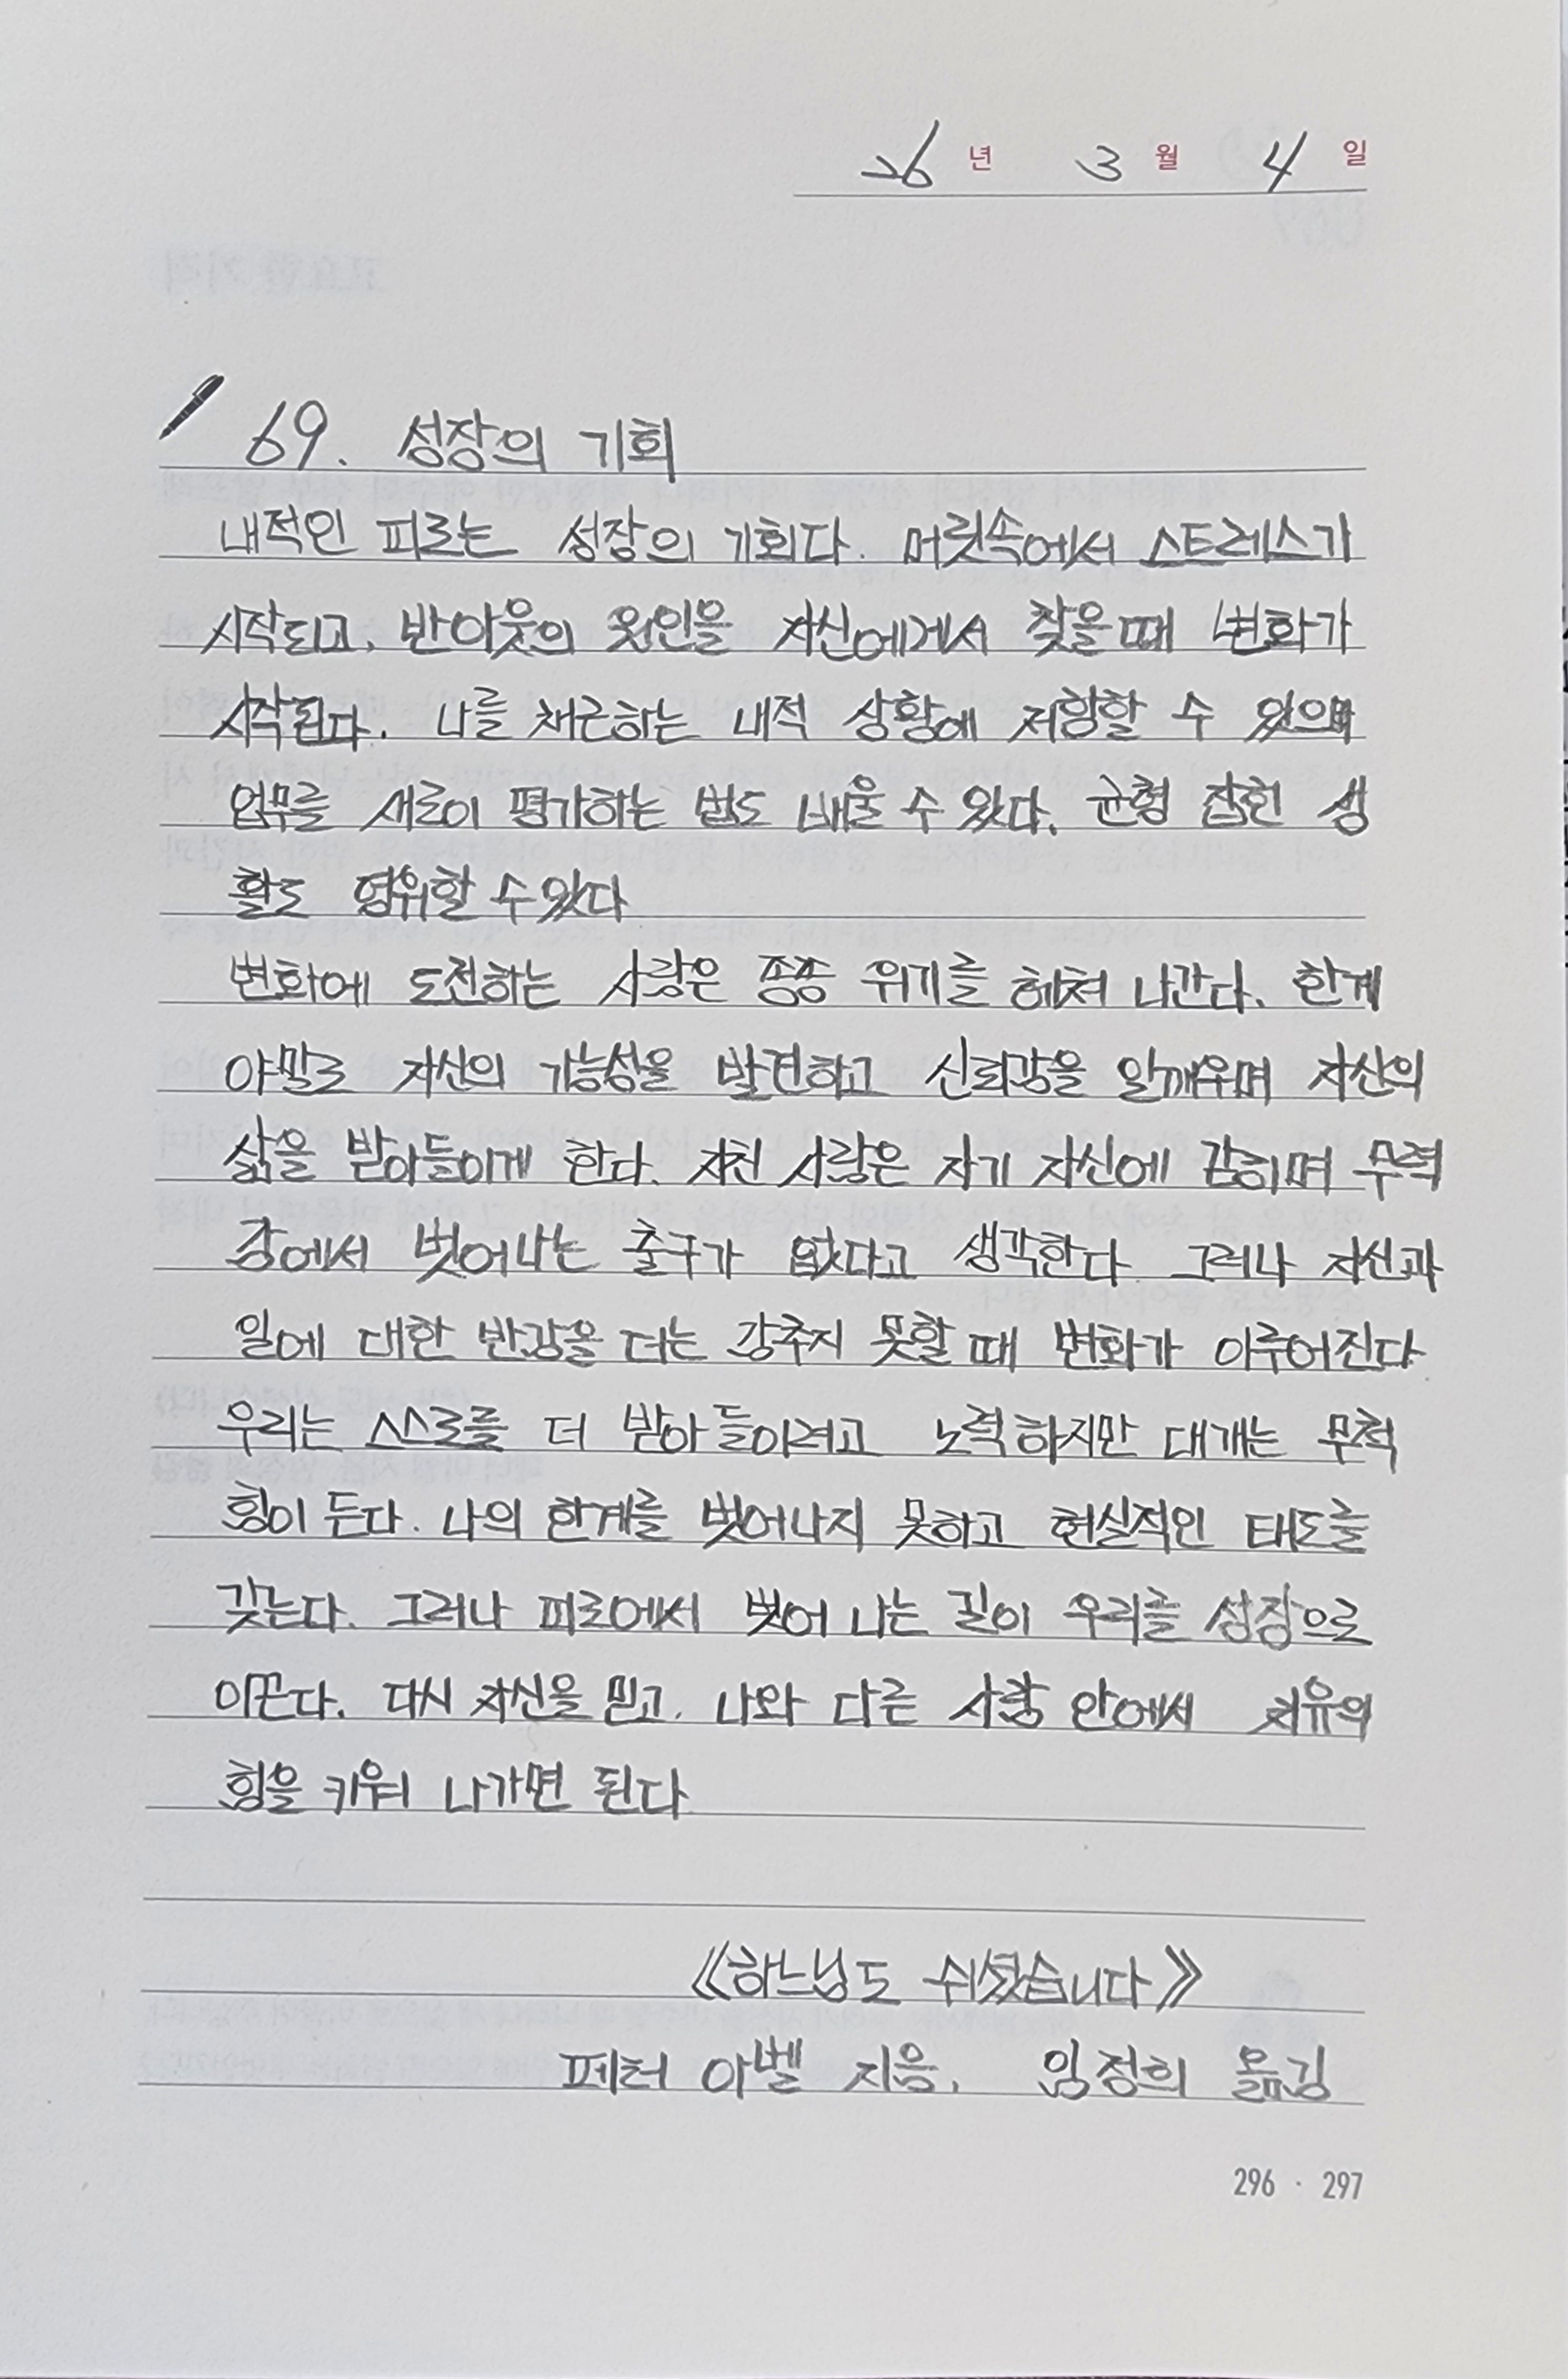 26년 3월 4일
69. 성장의 기회
내적인 피로는 성장의 기회다. 머릿속에서 스트레스가
시작되고, 반아웃의 원인을 자신에게서 찾을 때 변화가
시작된다. 나를 채근하는 내적 상황에 저항할 수 있으며
업무를 새로이 평가하는 법도 배울 수 있다. 균형 잡힌 생
활도 영위할 수 있다
변화에 도전하는 사람은 종종 위기를 헤쳐 나간다. 한계
야말로 자신의 가능성을 발견하고 신뢰감을 일깨우며 자신의
삶을 받아들이게 한다. 지친 사람은 자기 자신에 갇히며 무력
감에서 벗어나는 출구가 없다고 생각한다 그러나 자신과
일에 대한 반감을 더는 감추지 못할 때 변화가 이루어진다
우리는 스스로를 더 받아들이려고 노력하지만 대개는 무척
힘이 든다. 나의 한계를 벗어나지 못하고 현실적인 태도를
갖는다. 그러나 피로에서 벗어 나는 길이 우리를 성장으로
이끈다. 다시 자신을 믿고, 나와 다른 사람 안에서 치유의
힘을 키워 나가면 된다
《하느님도 쉬셨습니다》
페터 아벨 지음, 임정희 옮김
296 · 297